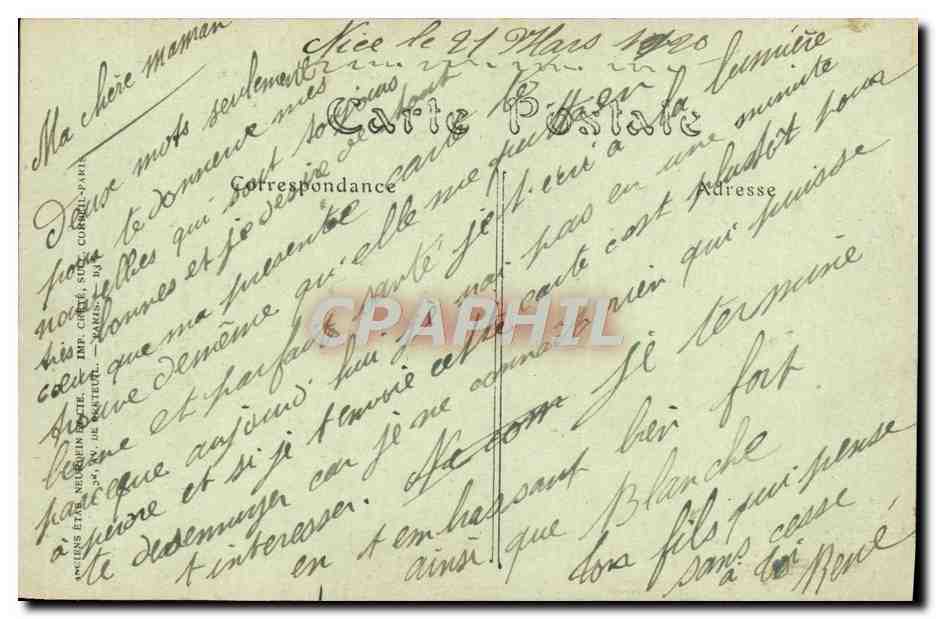 Nice le 21 Mars 1920
Ma chère maman
Carte Postale
Correspondance
Adresse
Deux mots seulement
pour te donner mes
nouvelles qui sont toujours
très bonnes et je désire de tout
cœur que ma présente carte te
trouve de même qu'elle me quitte en
bonne et parfaite santé je t'écri à la lumière
parceque aujourd'hui je n'ai pas eu une minute
à perdre et si je t'envoie cette carte cest plustôt pour
te désennuyer car je ne connait rien qui puisse
t interesser. je termine
en t embrassant bien fort
ainsi que Blanche
ton fils qui pense
sans cesse
à toi René
ANCIENS ÉTAB. NEURDEIN ET CIE. — IMP. CRÉTÉ, SUCC. CORBEIL-PARIS
52, AV. DE BRETEUIL. — PARIS.
CPAPHIL